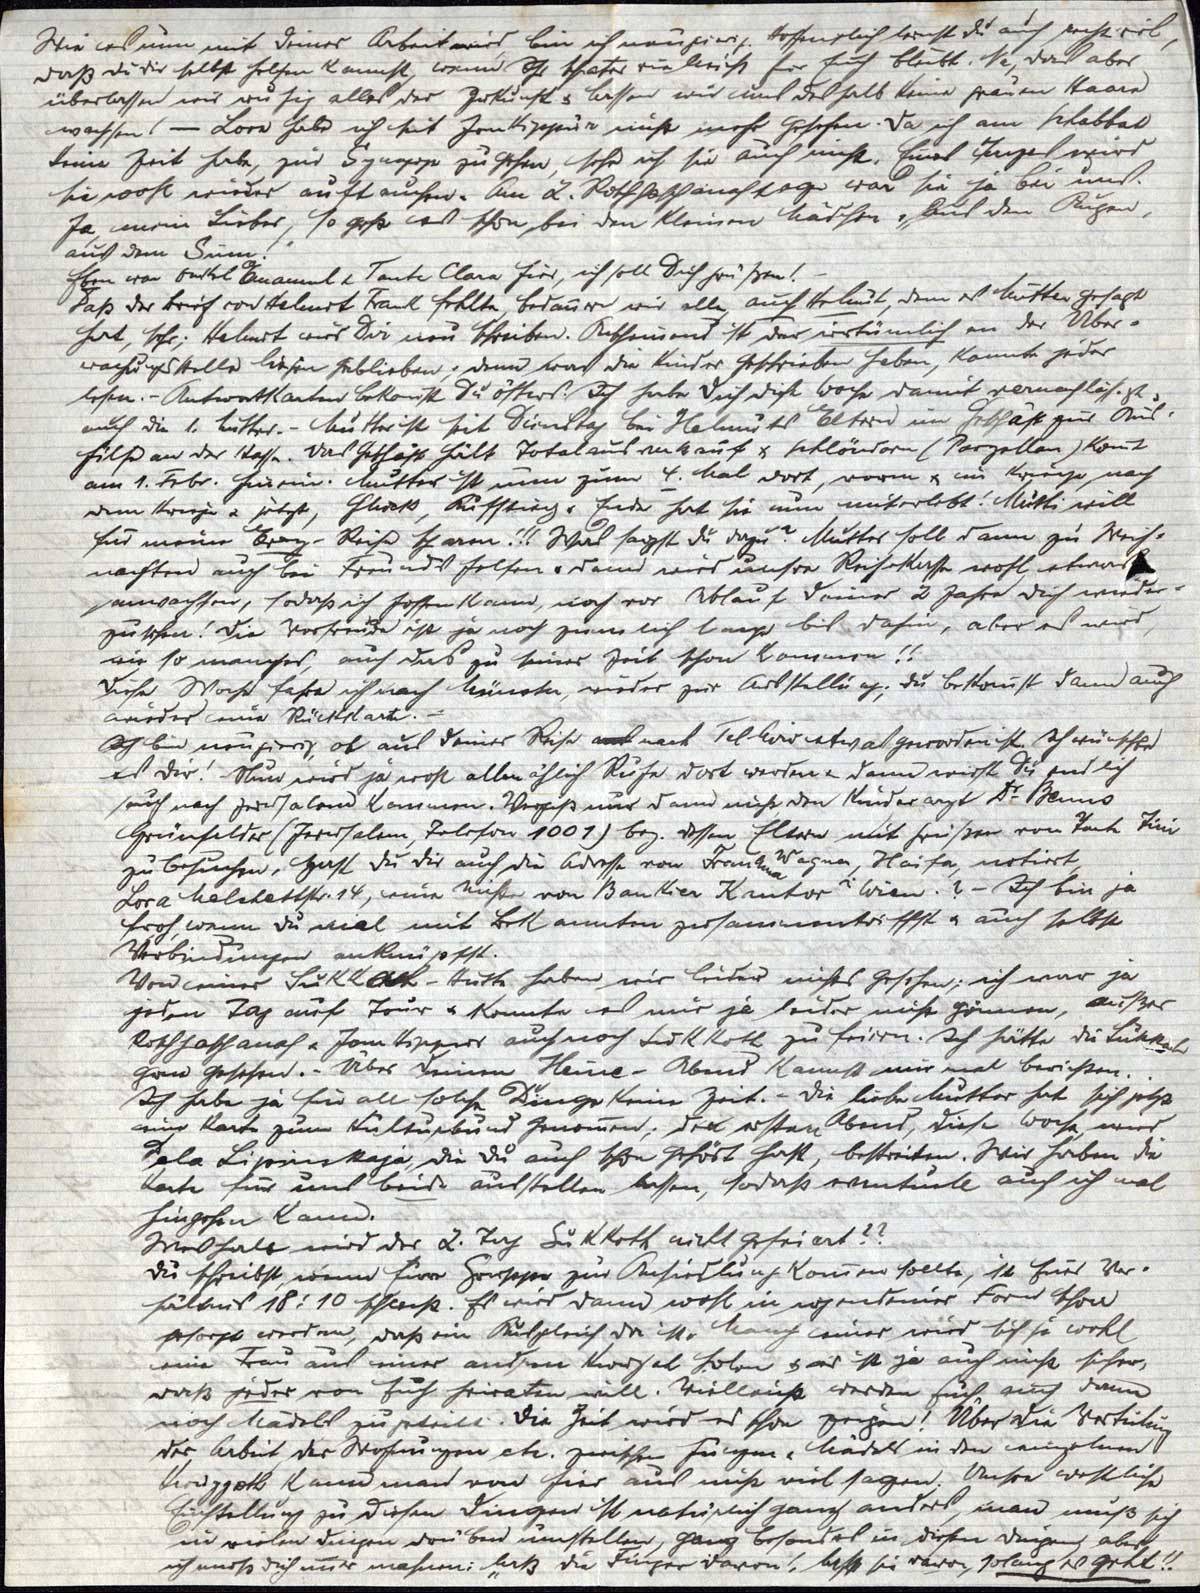 Wie es nun mit Deiner Arbeit wird, bin ich neugierig. Hoffentlich lernst Du auch recht viel,
daß du dir selbst helfen kannst, wenn Ihr später vielleicht für Euch bleibt. Na, das aber
überlassen wir ruhig alles der Zukunft & lassen wir uns deshalb keine grauen Haare
wachsen! — Lore habe ich seit Jomkippur nicht mehr gesehen. Da ich am Schabbat
keine Zeit habe, zur Synagoge zu gehen, sehe ich sie auch nicht. Eines Tages wird
sie wohl wieder auftauchen. Am 2. Roschhaschanahtage war sie ja bei uns.
Ja, mein Lieber, so geht es schon bei den kleinen Mädchen „Aus den Augen,
aus dem Sinn."
Eben war Onkel Emanuel & Tante Clara hier, ich soll Dich grüßen! —
Daß der Brief von Helmut Frank fehlte, bedauern wir alle, auch Helmut, dem es Mutter gesagt
hat, sehr; Helmut wird Dir neu schreiben. Anscheinend ist der irrtümlich an der Über-
wachungsstelle liegen geblieben, denn was die Kinder geschrieben haben, kannte jeder
lesen. - Antwortkarten bekommst Du öfters. Ich habe Dich diese Woche damit vernachlässigt
auch die l. Mutter. - Mutter ist seit Dienstag bei Helmuts Eltern im Geschäft zur Aus-
hilfe an der Kasse. Das Geschäft hält Totalausverkauf & (Porzellan) kommt
am 1. Febr. hinein. Mutter ist nun zum 4. Mal dort, vorm & im Kriege, nach
dem Kriege & jetzt, Glück, Aufstieg & Ende hat sie nun miterlebt! Mutti will
für meine Erez-Reise sparen!!! Was sagst Du dazu? Mutter soll dann zu Weih-
nachten auch bei Freunds helfen & dann wird unsere Reisekasse wohl etwas
anwachsen, sodaß ich hoffen kann, noch vor Ablauf Deiner 2 Jahre Dich wieder-
zusehen! Die Vorfreude ist ja noch ziemlich lange bis dahin, aber es wird,
wie so manches, auch das zu seiner Zeit schon kommen!!
Diese Woche fahre ich nach Münster, wieder zur Ausstellung; Du bekommst dann auch
wieder eine Rückkarte. —
Ich bin neugierig, ob aus Deiner Reise nach Tel Aviv etwas geworden ist. Ich wünschte
es Dir! Nun wird ja wohl allmählich Ruhe dort werden & dann wirst Du endlich
auch nach Jerusalem kommen. Vergiß nur dann nicht den Kinderarzt Dr Benno
Grünfelder (Jerusalem, Telefon 1001) bez. dessen Eltern mit Grüßen von Tante
zu besuchen. Hast Du Dir auch die Adresse von Wagner, Haifa, notiert
Lord Melchettstr. 14, eine Nichte von Bankier Kantor i/Wien.? — Ich bin ja
froh wenn Du mal mit Bekannten zusammentriffst & auch selbst
Verbindungen anknüpfst.
Von einer Sukkah-Hütte haben wir leider nichts gesehen; ich war ja
jeden Tag auf Tour & konnte es mir ja leider nicht gönnen, außer
Roschhaschanah & Jomkippur auch noch Sukkoth zu feiern. Ich hätte die Sukkah
gern gesehen. - Über Deinen Heine-Abend kannst mir mal berichten.
Ich habe ja für all solche Dinge keine Zeit. - Die liebe Mutter hat sich jetzt
eine Karte zum Kulturbund genommen; den ersten Abend, diese Woche, wird
Dela Lipinskaja, die Du auch schon gehört hast, bestreiten. Wir haben die
Karte für uns beide ausstellen lassen, sodaß eventuell auch ich mal
hingehen kann.
Weshalb wird der 2. Tag Sukkoth nicht gefeiert??
Du schreibst, wenn Eure Gruppe zur Ansiedlung kommen sollte, ist Euer Ver-
hältnis 18:10 schlecht. Es wird dann wohl in irgendeiner Form schon
gesorgt werden, daß ein Ausgleich da ist. Manch einer wird sich ja wohl
eine Frau aus einer andren Kwuzah holen & es ist ja auch nicht sicher,
daß jeder von Euch heiraten will. Vielleicht werden Euch auch dann
noch Mädels zugeteilt. Die Zeit wird es schon zeigen! Über die Verteilung
der Arbeit der Wohnungen etc. zwischen Jungen & Mädels in den einzelnen
Kwuzoth kann man von hier aus nicht viel sagen. Unsere westliche
Einstellung zu diesen Dingen ist natürlich ganz anders, man muß sich
in vielen Dingen drüben umstellen, ganz besonders in diesen Dingen, aber
ich muß Dich nur mahnen: „Laß die Finger davon!, laß sie davon, solang es geht!!